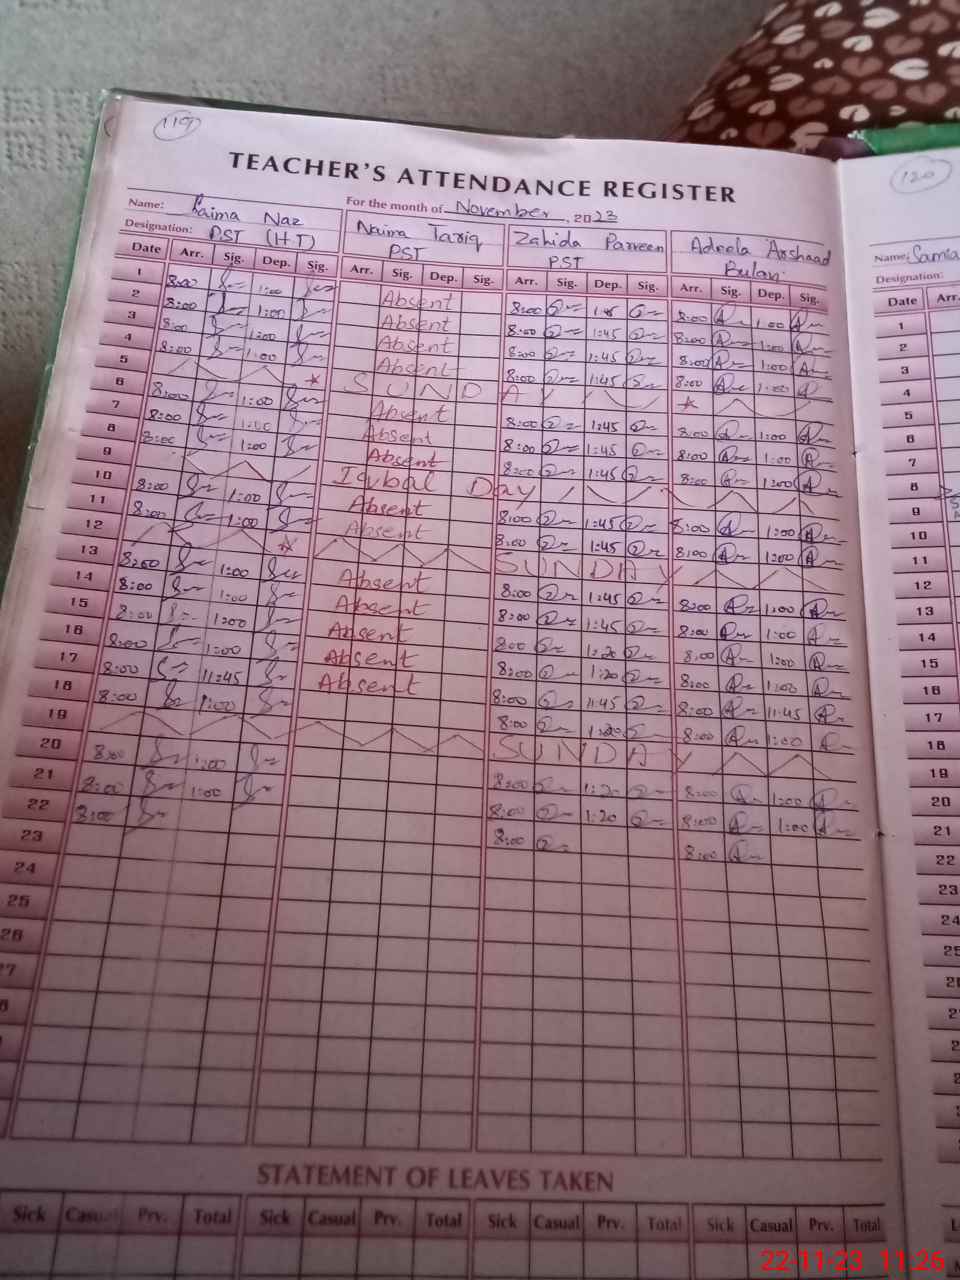 119
120
TEACHER'S ATTENDANCE REGISTER
For the month of November, 2023
Name: Saima Naz Naima Tariq Zahida Parveen Adeela Arshaad Name: Samia
Designation: PST (H.T) PST PST Designation:
Date Arr. Sig. Dep. Sig. Arr. Sig. Dep. Sig. Arr. Sig. Dep. Sig. Arr. Sig. Dep. Sig. Date Arr.
1 8:00 1:00 Absent 8:00 1:45 8:00 1:00 1
2 8:00 1:00 Absent 8:00 1:45 8:00 1:00 2
3 8:00 1:00 Absent 8:00 1:45 8:00 1:00 3
4 8:00 1:00 Absent 8:00 1:45 8:00 1:00 4
5 SUNDAY 5
6 8:00 1:00 Absent 8:00 1:45 8:00 1:00 6
7 8:00 1:00 Absent 8:00 1:45 8:00 1:00 7
8 8:00 1:00 Absent 8:00 1:45 8:00 1:00 8
9 Iqbal Day 9
10 8:00 1:00 Absent 8:00 1:45 8:00 1:00 10
11 8:00 1:00 Absent 8:00 1:45 8:00 1:00 11
12 SUNDAY 12
13 8:00 1:00 Absent 8:00 1:45 8:00 1:00 13
14 8:00 1:00 Absent 8:00 1:45 8:00 1:00 14
15 8:00 1:00 Absent 8:00 1:20 8:00 1:00 15
16 8:00 1:00 Absent 8:00 1:20 8:00 1:00 16
17 8:00 11:45 Absent 8:00 11:45 8:00 11:45 17
18 8:00 1:00 8:00 1:20 8:00 1:00 18
19 SUNDAY 19
20 8:00 1:00 8:00 1:20 8:00 1:00 20
21 8:00 1:00 8:00 1:20 8:00 1:00 21
22 8:00 8:00 8:00 22
23 23
24 24
25 25
26
27
STATEMENT OF LEAVES TAKEN
Sick Casual Prv. Total Sick Casual Prv. Total Sick Casual Prv. Total Sick Casual Prv. Total
22-11-23 11:26